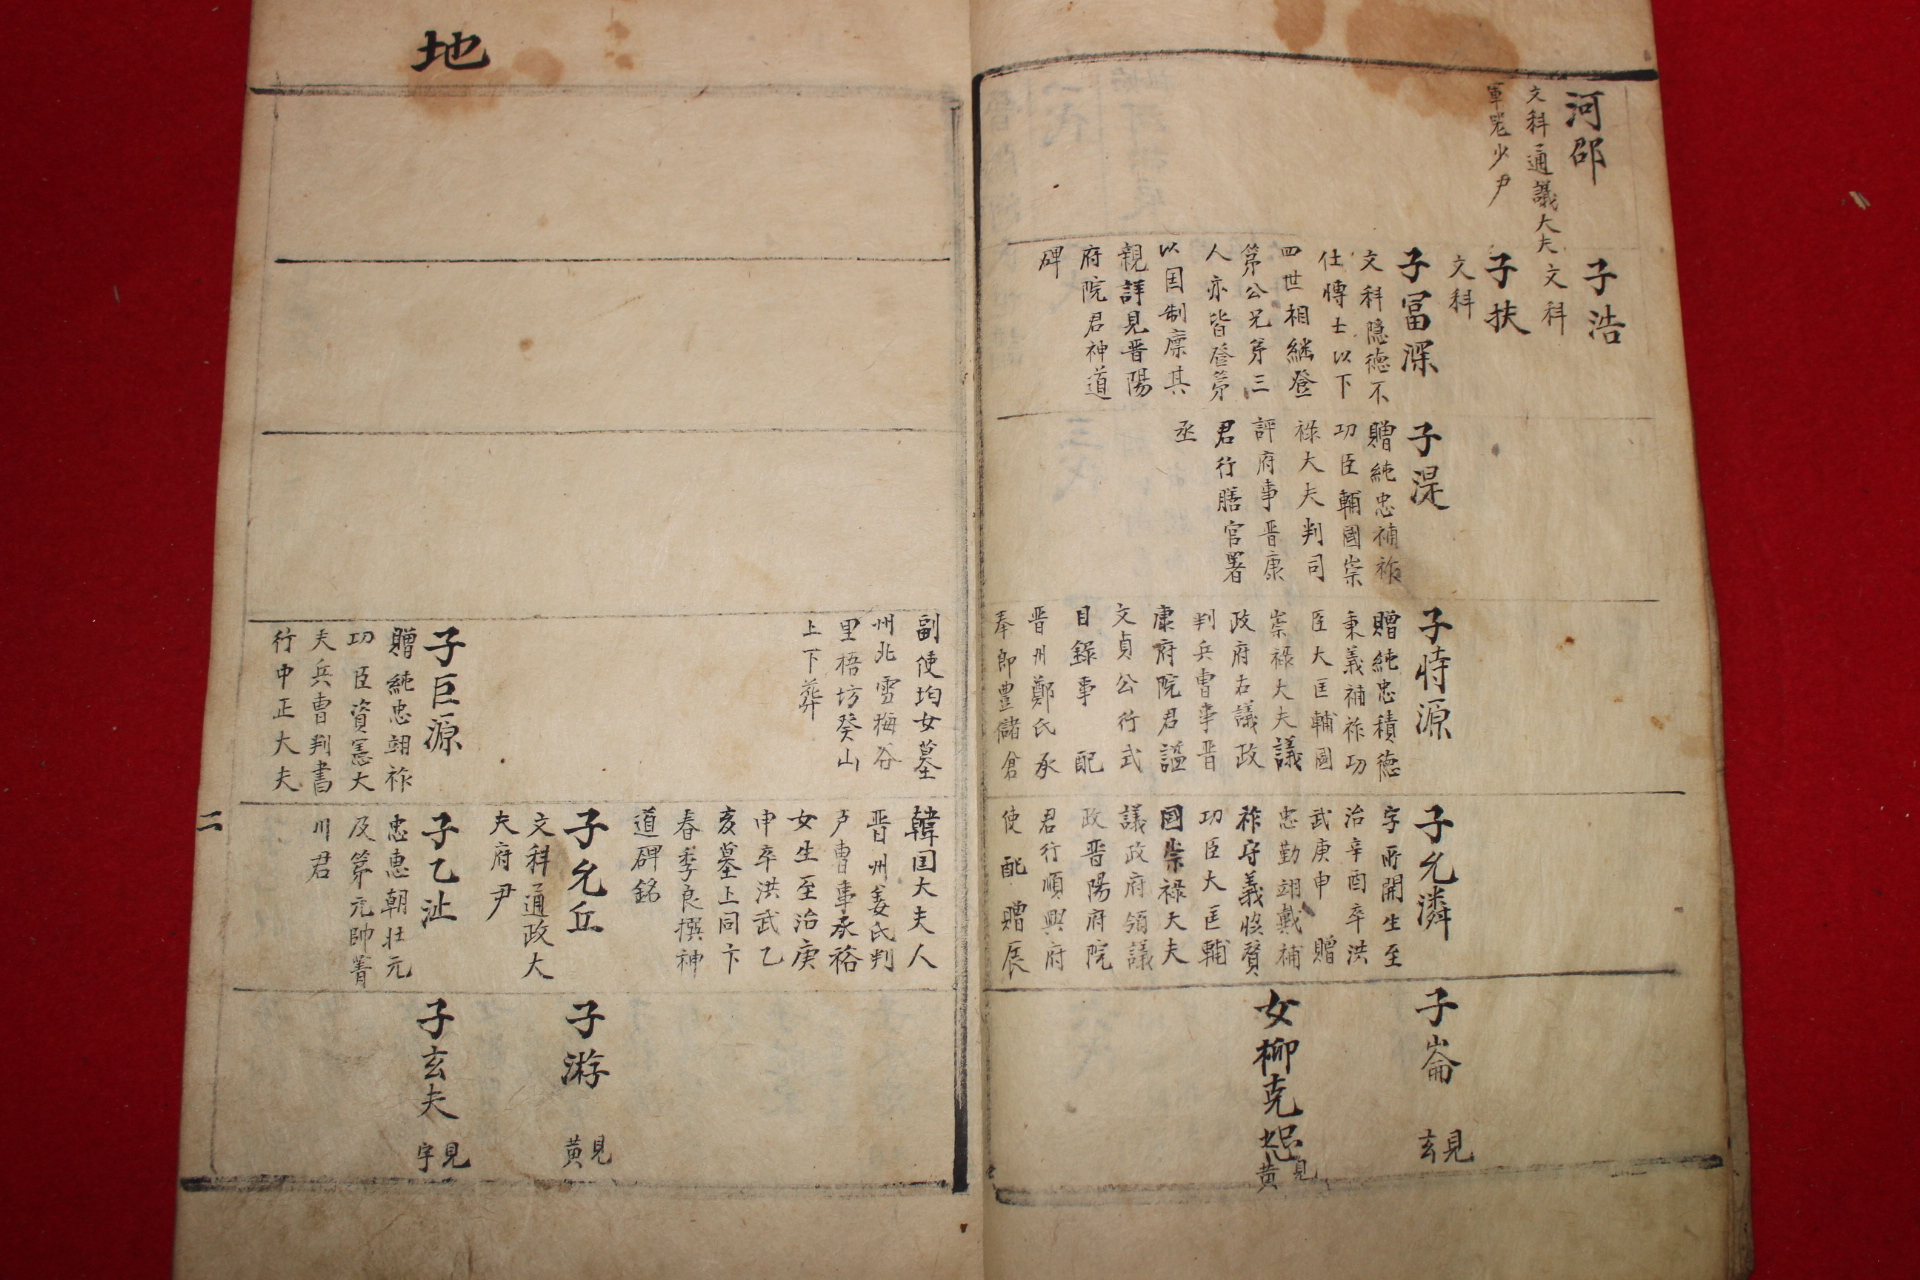 河卲
文科通議大夫
軍器少尹
子浩
文科
子扶
文科
子冨深
文科隐德不
仕愽士以下
四世相繼登
第公兄弟三
人亦皆登第
以国制廩其
親詳見晋陽
府院君神道
碑
子湜
贈純忠補祚
功臣輔國崇
祿大夫判司
評府事晋康
君行膳官署
丞
子恃源
贈純忠積德
秉義補祚功
臣大匡輔國
崇祿大夫議
政府右議政
判兵曹事晋
康府院君謚
文貞公行式
目錄事 配
晋州鄭氏承
奉郎豊儲倉
子允潾
字所開生至
治辛酉卒洪
武庚申 贈
忠勤翊戴補
祚守義恢賛
功臣大匡輔
國崇祿大夫
議政府領議
政晋陽府院
君行順興府
使 配 贈辰
子崙
見玄
女柳克恕
見黄
地
副使均女墓
州北雪梅谷
里梧坊癸山
上下葬
子巨源
贈純忠翊祚
功臣資憲大
夫兵曹判書
行中正大夫
韓国大夫人
晋州姜氏判
戸曹事承裕
女生至治庚
申卒洪武乙
亥墓上同卞
春季良撰神
道碑銘
子允丘
文科通政大
夫府尹
子乙沚
忠惠朝壮元
及第元帥菁
川君
子游
見黄
子玄夫
見宇
二